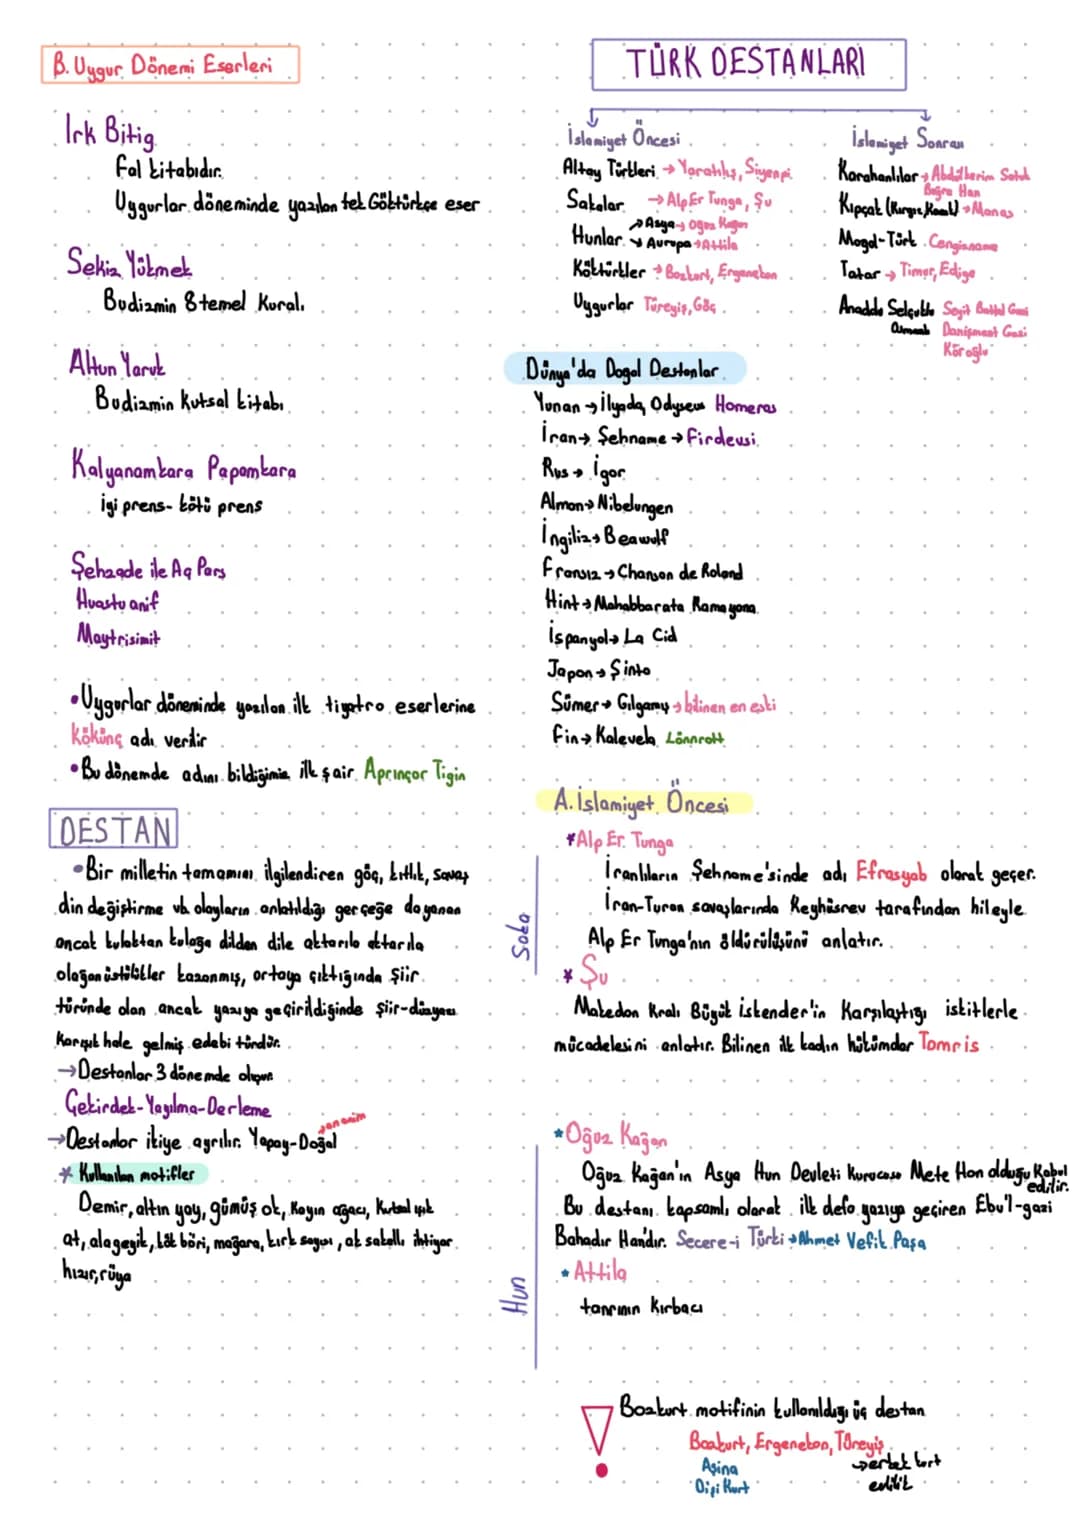 B. Uygur Dönemi Eserleri
Irk Bitig
fal kitabıdır.
Uygurlar döneminde yazılan tek Göktürkçe eser
Sekiz Yükmek
Budizmin 8 temel kuralı
Altun Yaruk
Budizmin kutsal kitabı
Kalyanamkara Papamkara
iyi prens- kötü prens
Şehzade ile Aç Pars
Huastuanif
Maytrisimit
•Uygurlar döneminde yazılan ilk tiyatro eserlerine
Kökünç adı verilir
•Bu dönemde adını bildiğimiz ilk şair Aprınçor Tigin
DESTAN
•Bir milletin tamamını ilgilendiren göç, kıtlık, savaş
din değiştirme vb. olayların anlatıldığı gerçeğe dayanan
ancak kulaktan kulağa dilden dile aktarıla aktarıla
olağanüstülükler kazanmış, ortaya çıktığında şiir
türünde olan ancak yazıya geçirildiğinde şiir-düzyazı
karışık hale gelmiş edebi türdür.
→Destanlar 3 dönemde oluşur.
Çekirdek-Yayılma-Derleme
→Destanlar ikiye ayrılır. Yapay-Doğal →anonim
* Kullanılan motifler
Demir, altın yay, gümüş ok, kayın ağacı, kutsal ışık
at, alageyik, kök böri, mağara, kırk sayısı, ak sakallı ihtiyar
hızır, rüya
TÜRK DESTANLARI
İslamiyet Öncesi
Altay Türkleri → Yaratılış, Siyenpi
Sakalar → Alp Er Tunga, Şu
Hunlar → Asya → Oğuz Kağan
→ Avrupa → Attila
Köktürkler → Bozkurt, Ergenekon
Uygurlar Türeyiş, Göç
İslamiyet Sonrası
Karahanlılar → Abdülkerim Satuk
Buğra Han
Kıpçak (Kırgız, Kazak) → Manas
Mogol-Türk Cengizname
Tatar → Timur, Edige
Anadolu Selçuklu Seyit Battal Gazi
Osmanlı Danişment Gazi
Köroğlu
Dünya'da Doğal Destanlar
Yunan → İlyada, Odyseus Homeros
İran → Şehname → Firdevsi
Rus → İgor
Alman → Nibelungen
İngiliz → Beawulf
Fransız → Chanson de Roland
Hint → Mahabbarata Ramayana
İspanyol → La Cid
Japon → Şinto
Sümer → Gılgamış → bilinen en eski
Fin → Kalevela Lönnrott
A. İslamiyet Öncesi
Saka
*Alp Er Tunga
İranlıların Şehname'sinde adı Efrasyab olarak geçer.
İran-Turan savaşlarında Keyhüsrev tarafından hileyle
Alp Er Tunga'nın öldürülüşünü anlatır.
* Şu
Makedon Kralı Büyük İskender'in Karşılaştığı iskitlerle
mücadelesini anlatır. Bilinen ilk kadın hükümdar Tomris
Hun
*Oğuz Kağan
Oğuz Kağan'ın Asya Hun Devleti kurucusu Mete Han olduğu kabul
edilir.
Bu destanı kapsamlı olarak ilk defa yazıya geçiren Ebu'l-gazi
Bahadır Han'dır. Secere-i Türki → Ahmet Vefik Paşa
* Attila
tanrının kırbacı
! Bozkurt motifinin kullanıldığı üç destan
Bozkurt, Ergenekon, Türeyiş
Aşina
Dişi Kurt
→erkek kurt